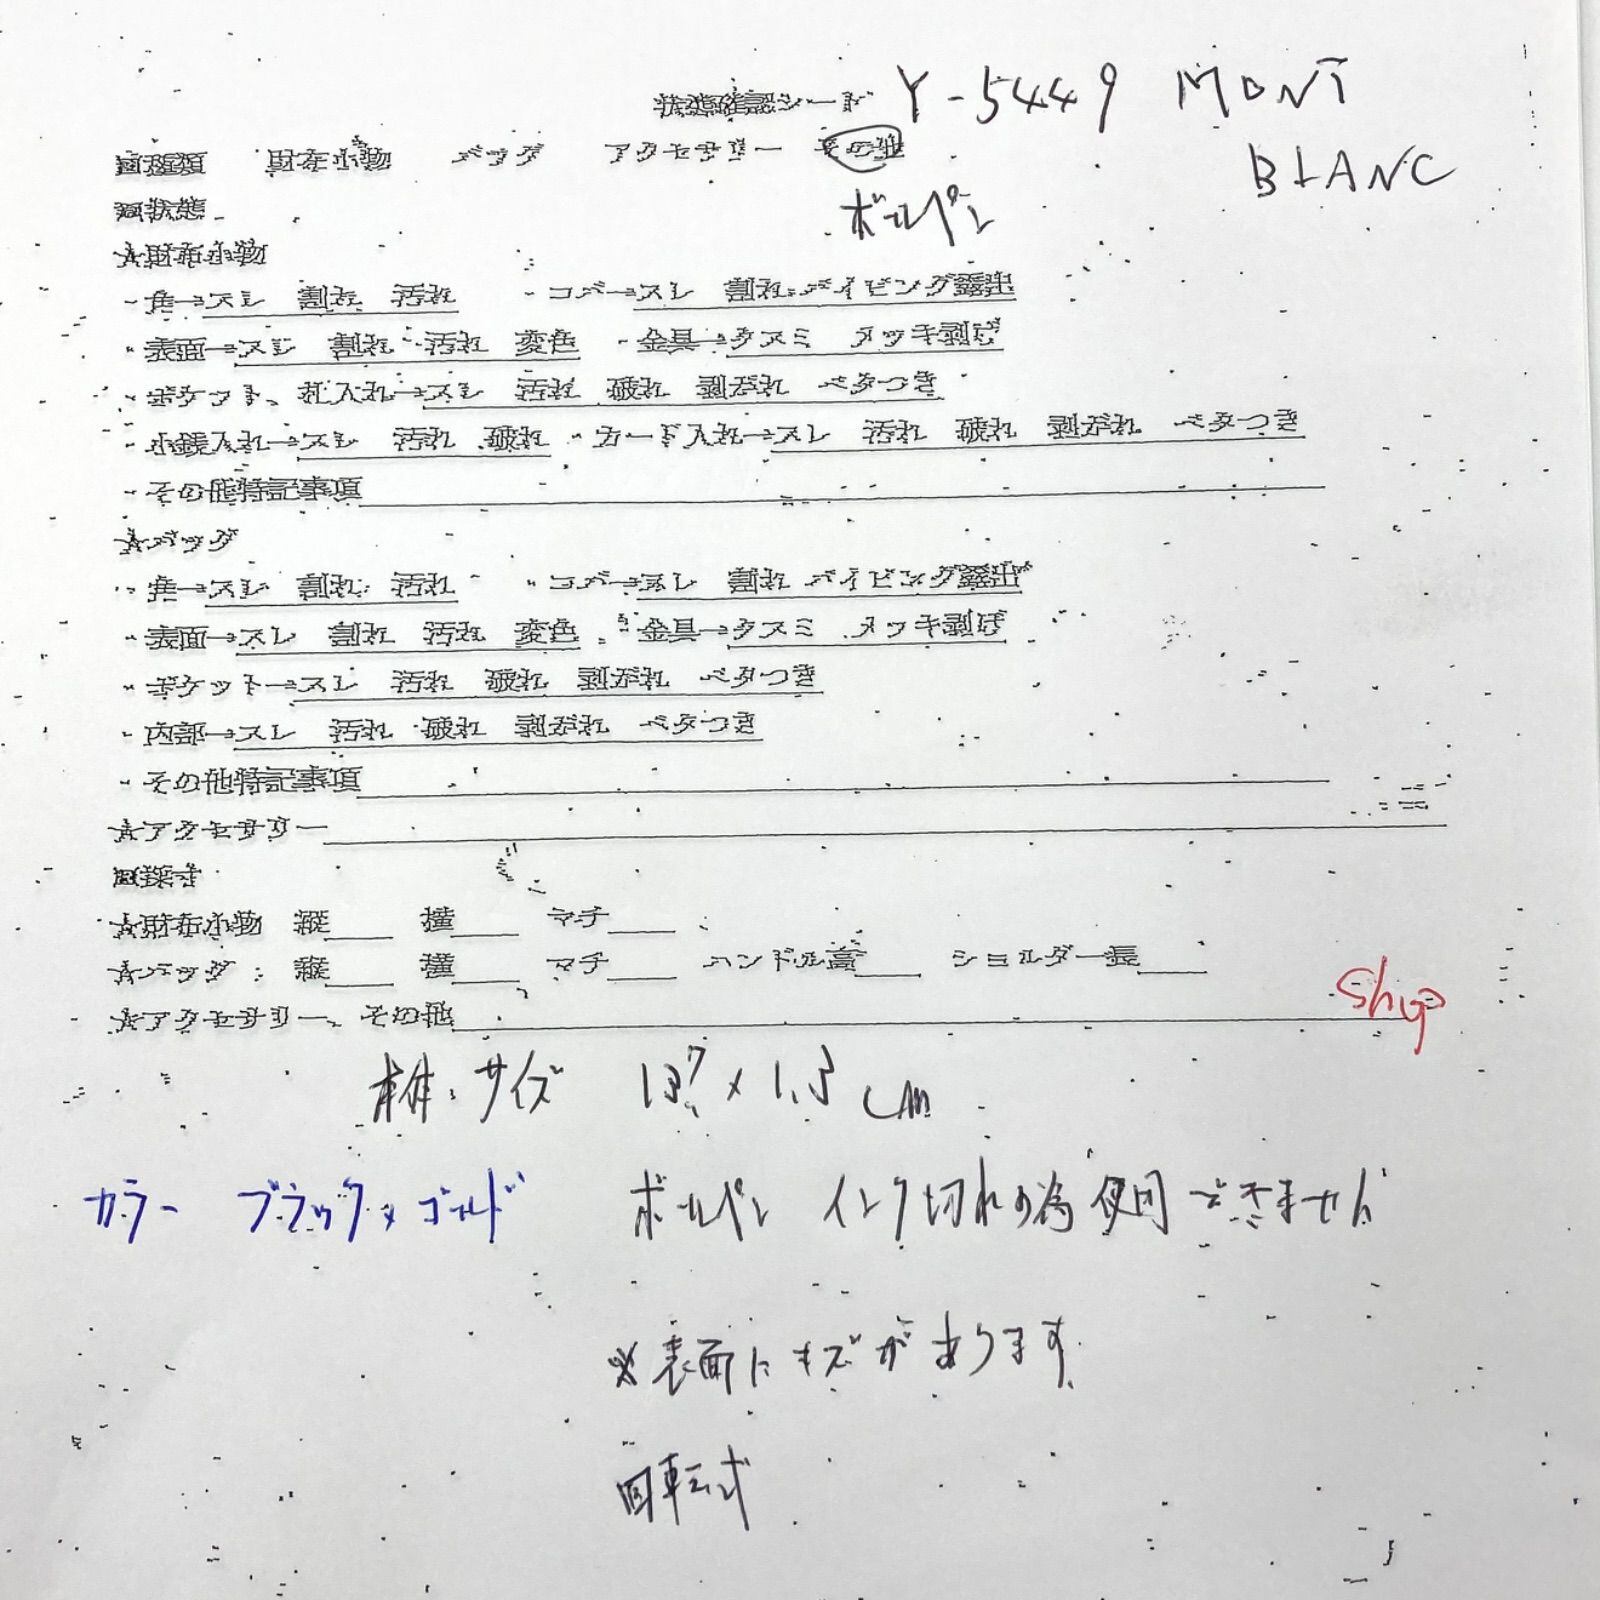 状態確認シート Y-5449 MONT
BLANC
□種類 財布小物 バッグ アクセサリー その他
ボールペン
□状態
★財布小物
・角→スレ 割れ 汚れ ・コバ→スレ 割れ パイピング露出
・表面→スレ 割れ 汚れ 変色 ・金具→クスミ メッキ剥げ
・ポケット、札入れ→スレ 汚れ 破れ 剥がれ ベタつき
・小銭入れ→スレ 汚れ 破れ ・カード入れ→スレ 汚れ 破れ 剥がれ ベタつき
・その他特記事項
★バッグ
・角→スレ 割れ 汚れ ・コバ→スレ 割れ パイピング露出
・表面→スレ 割れ 汚れ 変色 ・金具→クスミ メッキ剥げ
・ポケット→スレ 汚れ 破れ 剥がれ ベタつき
・内部→スレ 汚れ 破れ 剥がれ ベタつき
・その他特記事項
★アクセサリー
□採寸
★財布小物 縦 横 マチ
★バッグ: 縦 横 マチ ハンドル高 ショルダー長
★アクセサリー、その他
本体サイズ 13.7 × 1.3 cm
カラー ブラック×ゴールド ボールペン インク切れの為使用できません
※表面にキズがあります
回転式